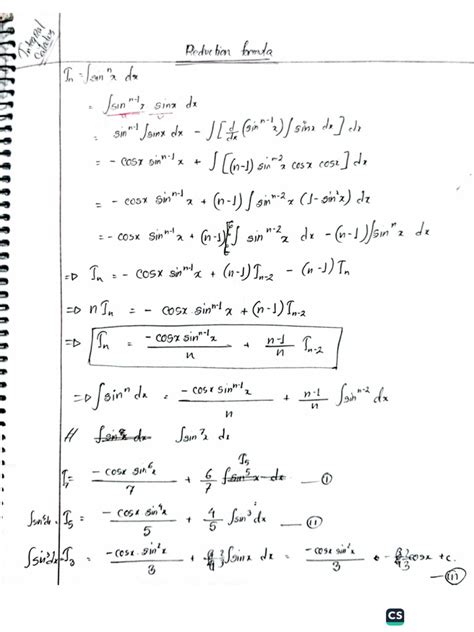 Integral
Calculus
Reduction formula
Iₙ = ∫sinⁿx dx
= ∫sinⁿ⁻¹x sinx dx
= sinⁿ⁻¹∫sinx dx - ∫[d/dx (sinⁿ⁻¹x) ∫sinx dx] dx
= - cosx sinⁿ⁻¹x + ∫[(n-1) sinⁿ⁻²x cosx cosx] dx
= - cosx sinⁿ⁻¹x + (n-1) ∫sinⁿ⁻²x (1-sin²x) dx
= - cosx sinⁿ⁻¹x + (n-1) ∫sinⁿ⁻²x dx - (n-1)∫sinⁿx dx
=> Iₙ = - cosx sinⁿ⁻¹x + (n-1)Iₙ₋₂ - (n-1)Iₙ
=> nIₙ = - cosx sinⁿ⁻¹x + (n-1)Iₙ₋₂
=> Iₙ = -cosx sinⁿ⁻¹x/n + n-1/n Iₙ₋₂
=> ∫sinⁿdx = -cosx sinⁿ⁻¹x/n + n-1/n ∫sinⁿ⁻²dx
// ∫sin⁷x dx
I₇ = -cosx sin⁶x/7 + 6/7 I₅ — (i)
I₅ = -cosx sin⁴x/5 + 4/5 ∫sin³dx — (ii)
I₃ = -cosx sin²x/3 + 2/3 ∫sinx dx = -cosx sin²x/3 - 2/3 cosx + c. — (iii)
CS